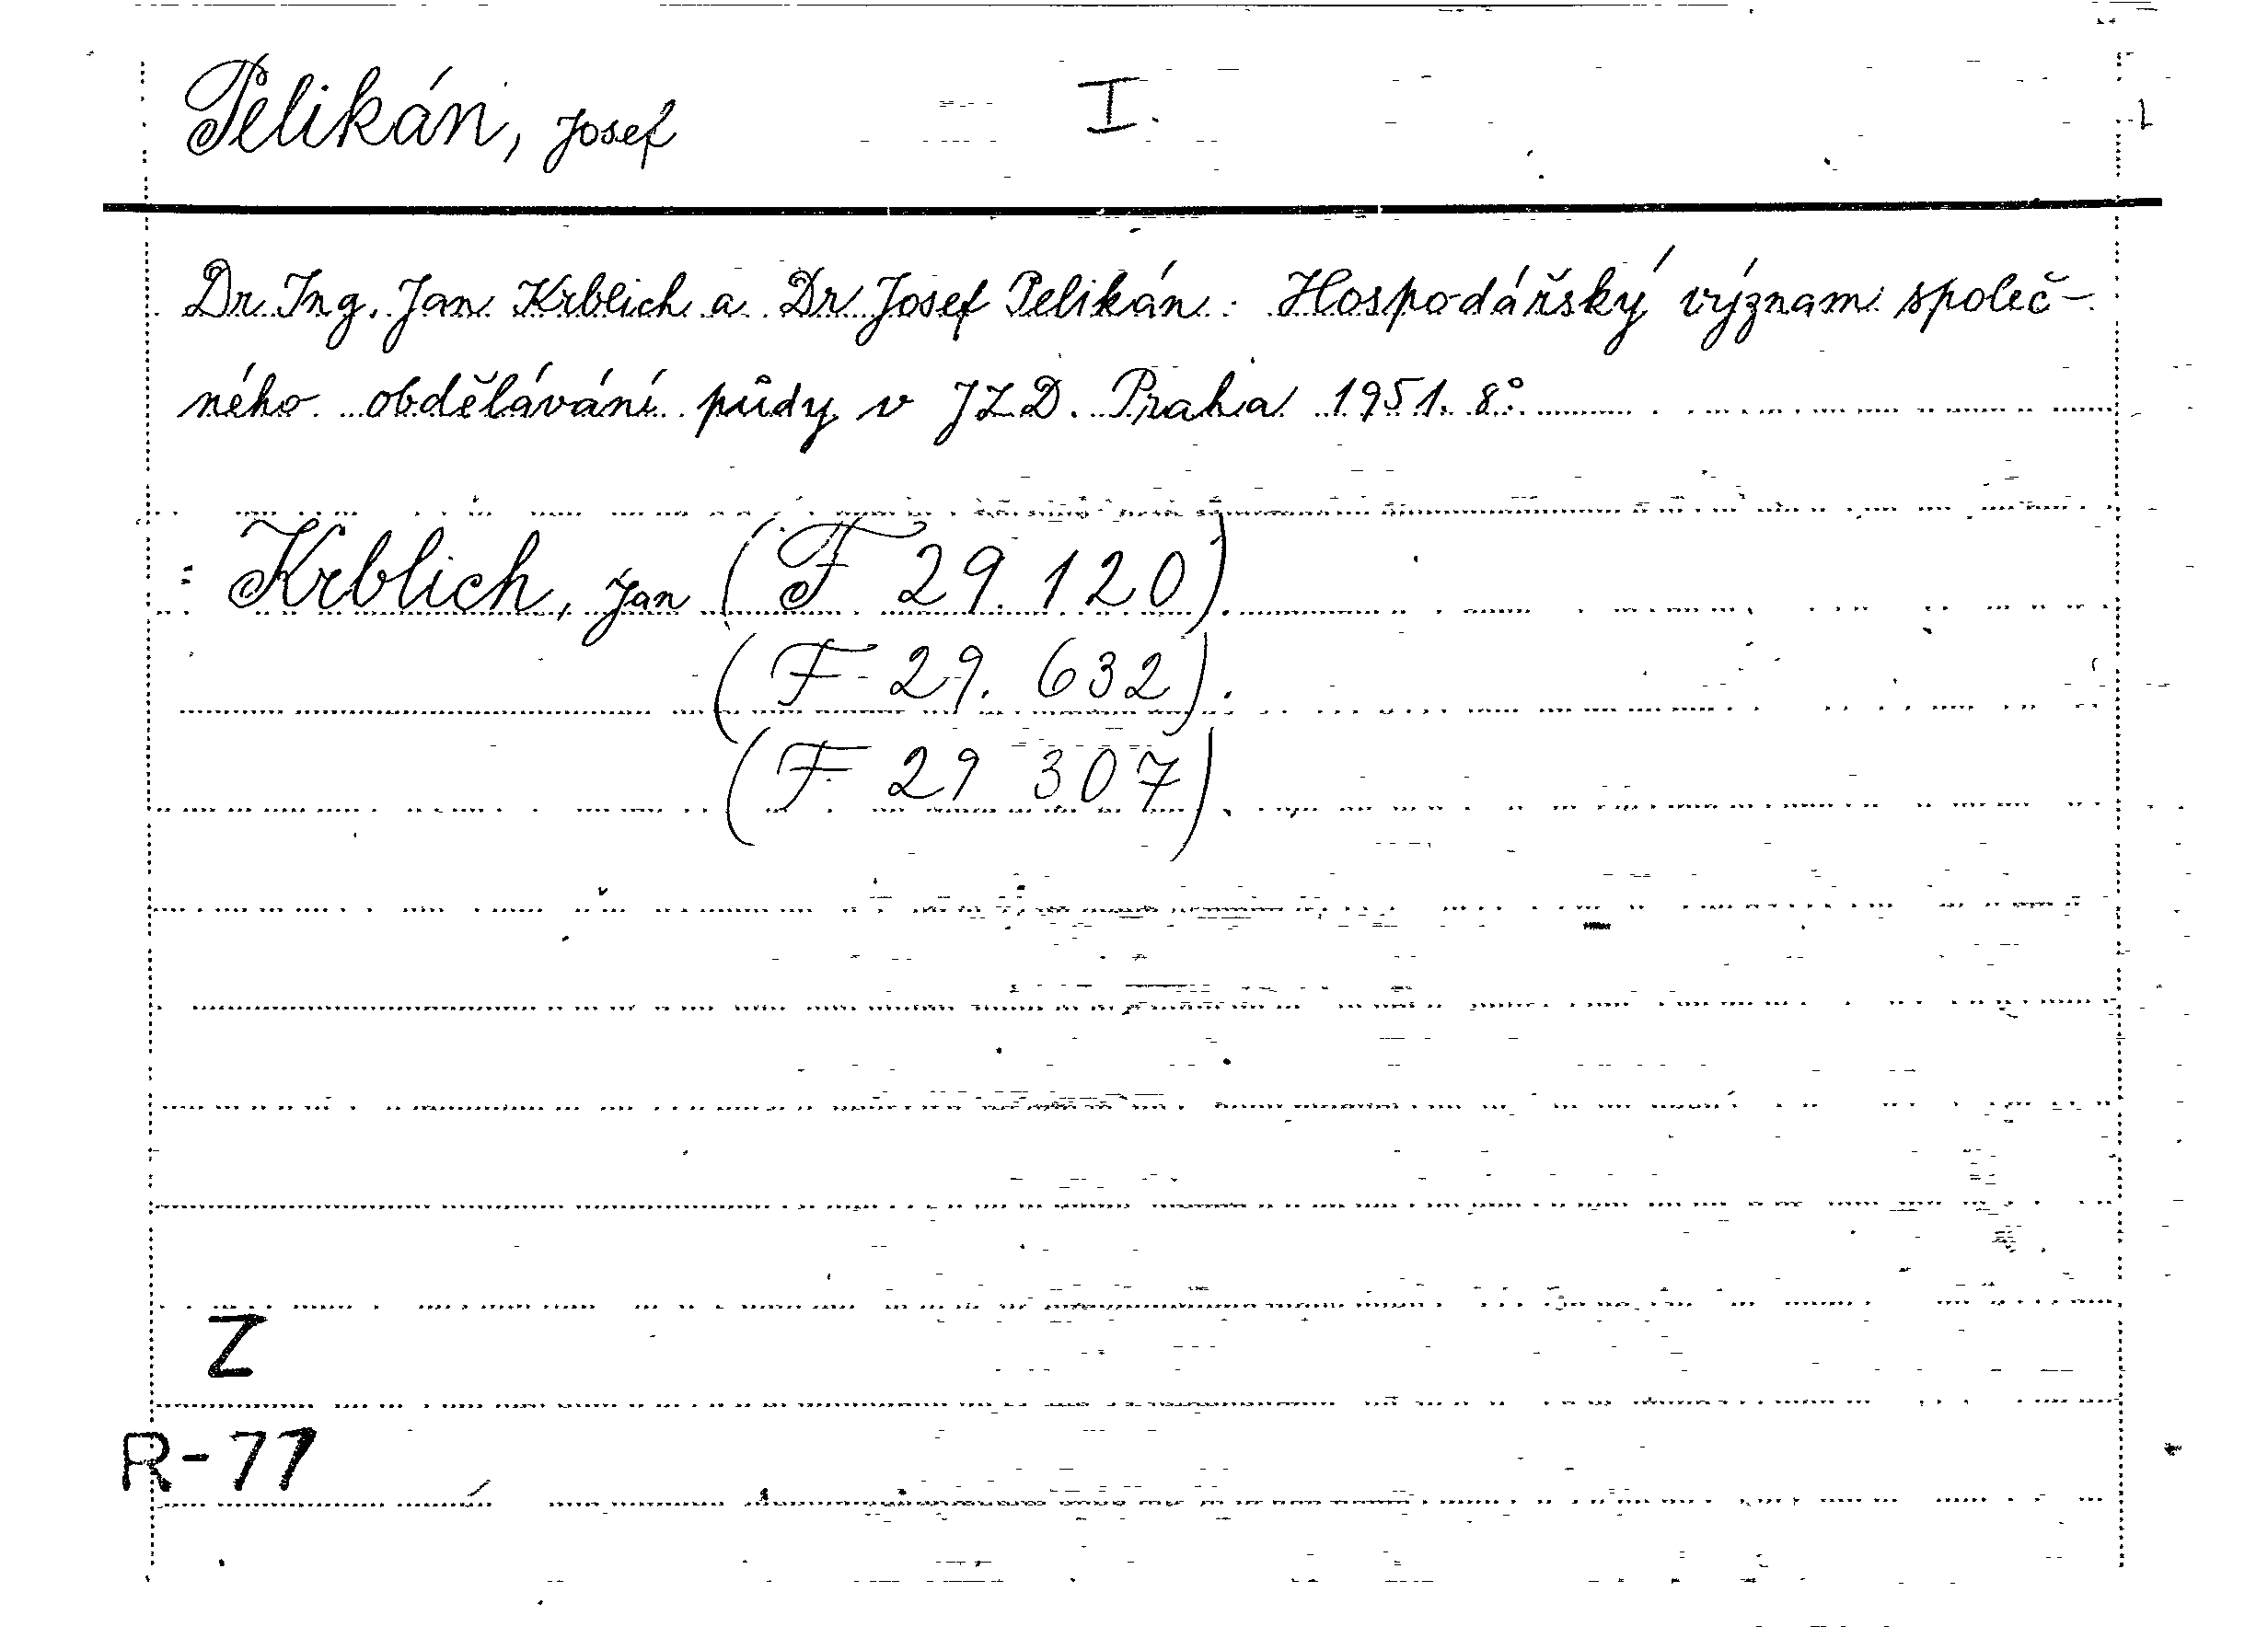 Pelikán, Josef I.
Dr. Ing. Jan Krblich a Dr Josef Pelikán: Hospodářský význam společ-
ného obdělávání půdy v JZD. Praha 1951. 8°.
: Krblich, Jan (F 29.120).
(F 29.632).
(F 29 307).
Z
R-77